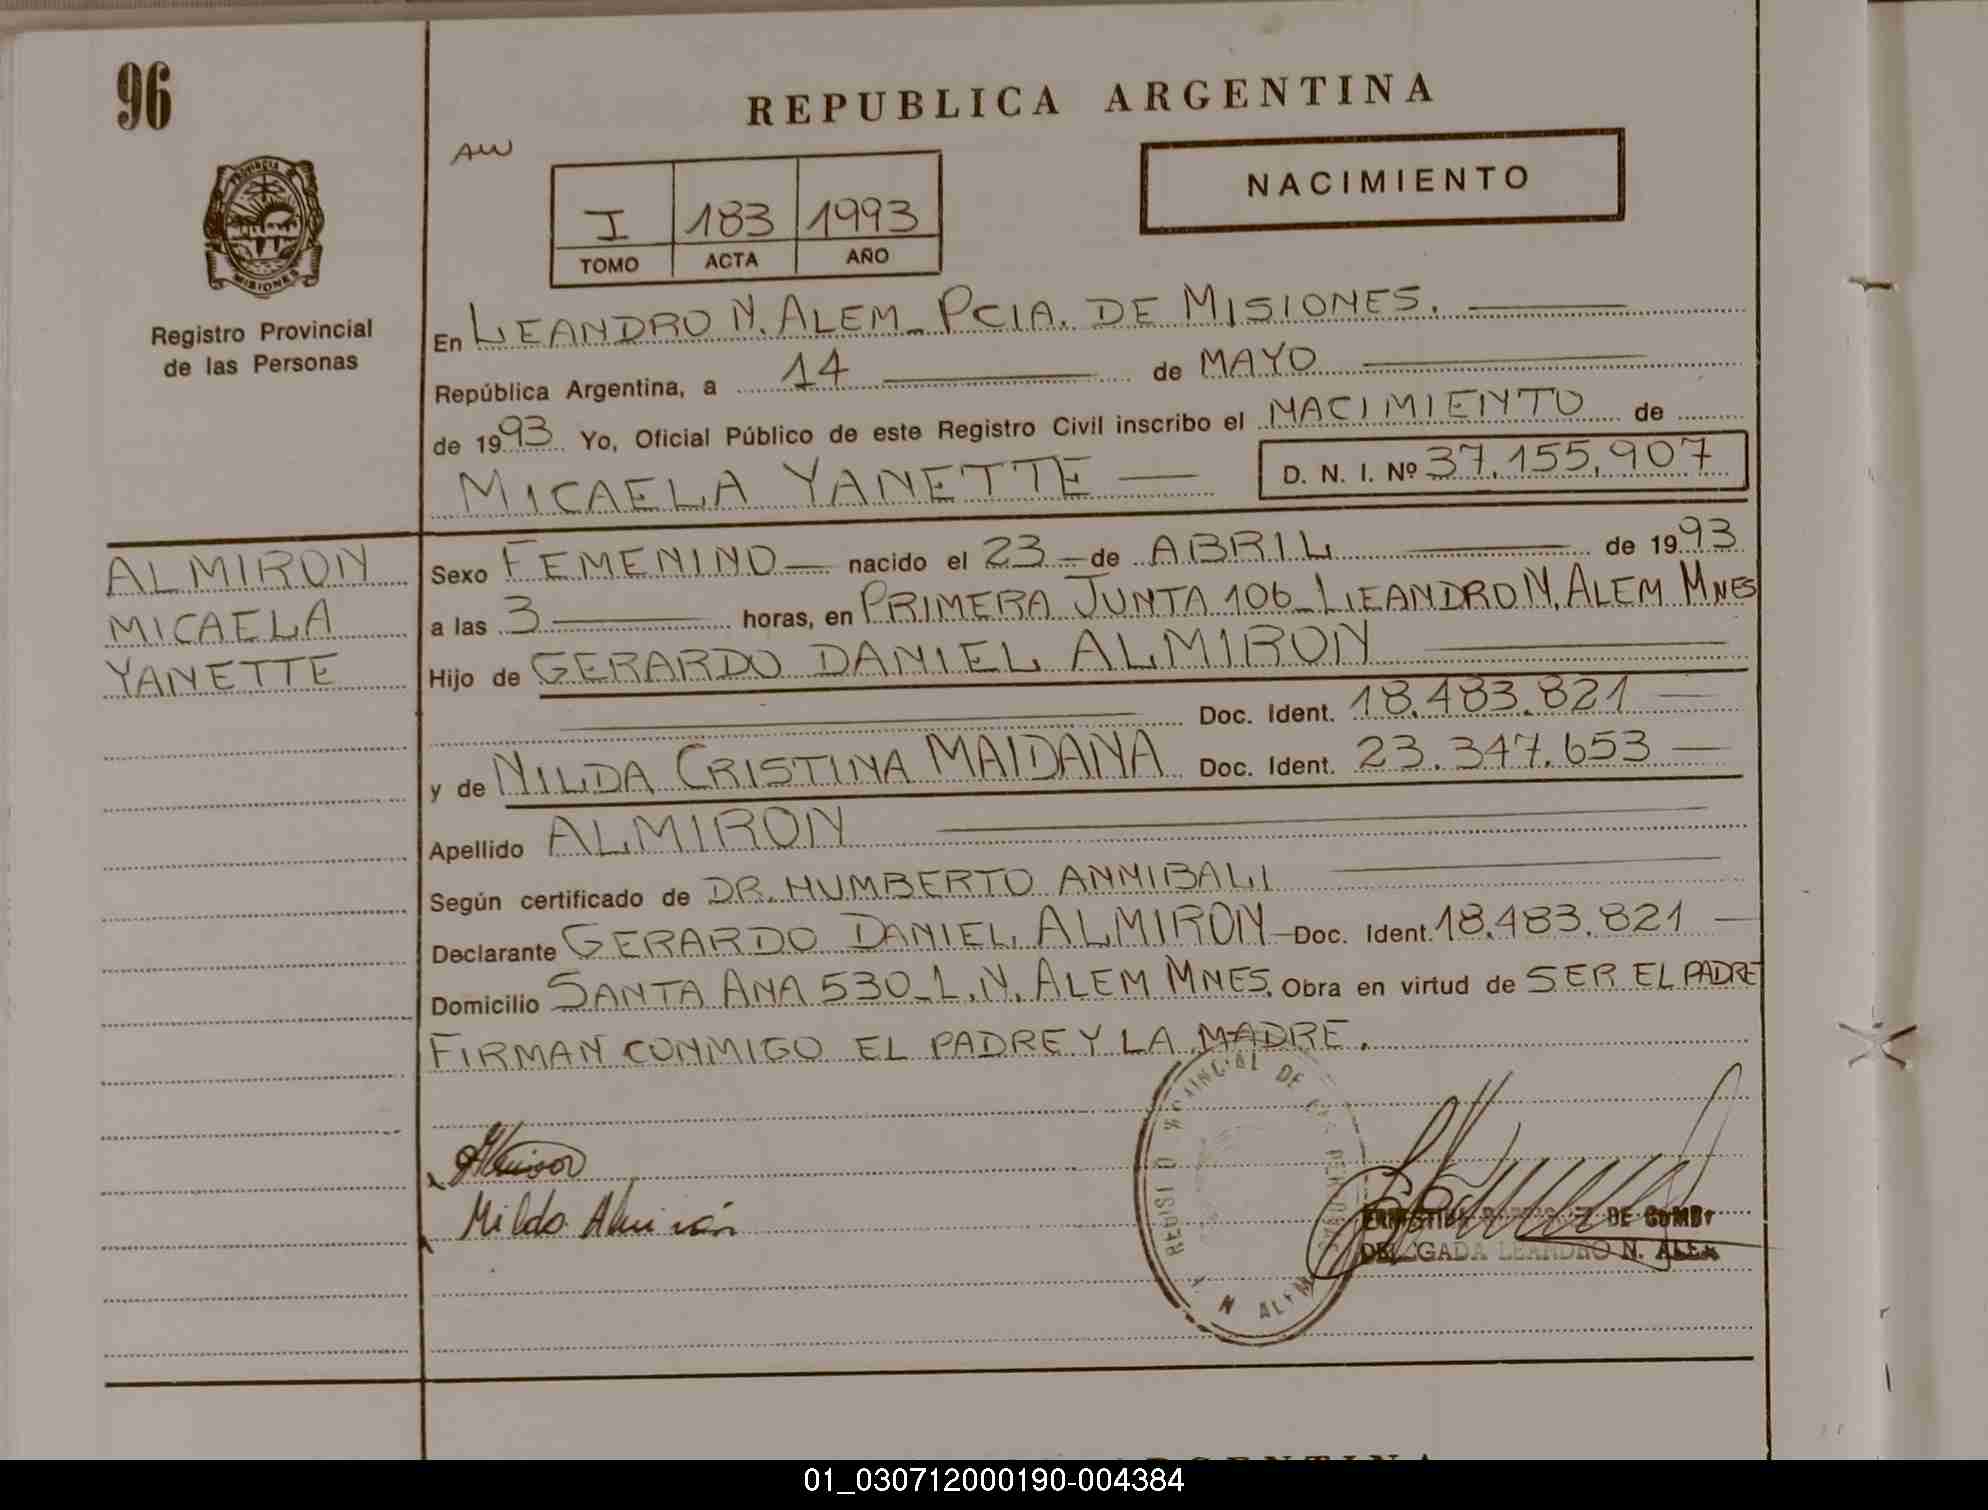 96
REPUBLICA ARGENTINA
NACIMIENTO
I 183 1993
TOMO ACTA AÑO
PROVINCIA
MISIONES
Registro Provincial
de las Personas
En LEANDRO N. ALEM_ PCIA. DE MISIONES.
República Argentina, a 14 de MAYO
de 1993 Yo, Oficial Público de este Registro Civil inscribo el NACIMIENTO de
MICAELA YANETTE — D. N. I. Nº 37.155.907
ALMIRON
MICAELA
YANETTE
Sexo FEMENINO — nacido el 23 — de ABRIL de 1993
a las 3 horas, en PRIMERA JUNTA 106_ LEANDRO N. ALEM MNES
Hijo de GERARDO DANIEL ALMIRON
Doc. Ident. 18.483.821 —
y de NILDA CRISTINA MAIDANA Doc. Ident. 23.347.653 —
Apellido ALMIRON
Según certificado de DR. HUMBERTO ANNIBALI
Declarante GERARDO DANIEL ALMIRON — Doc. Ident. 18.483.821 —
Domicilio SANTA ANA 530_ L. N. ALEM MNES. Obra en virtud de SER EL PADRE
FIRMAN CONMIGO EL PADRE Y LA MADRE.
Nilda Almirón
DE
N ALEM
DELEGADA LEANDRO N. ALEM
ARGENTINA
01_030712000190-004384